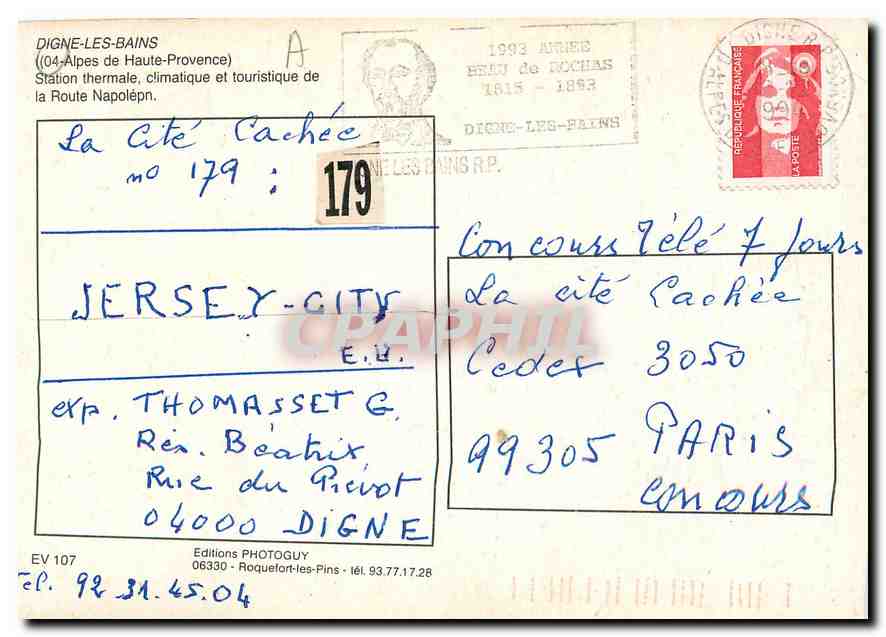 DIGNE-LES-BAINS
(04-Alpes de Haute-Provence)
Station thermale, climatique et touristique de
la Route Napolépn.
A
1993 ANNEE
BEAU de ROCHAS
1815 - 1893
DIGNE-LES-BAINS
DIGNE LES BAINS R.P.
DIGNE R.P.
RÉPUBLIQUE FRANÇAISE
LA POSTE
La Cité Cachée
no 179 :
179
JERSEY-CITY
E.U.
exp. THOMASSET G.
Rés. Béatrix
Rue du Prévot
04000 DIGNE
Concours Télé 7 Jours
La cité Cachée
Cedex 3050
99305 PARIS
concours
CPAPHIL
EV 107
Editions PHOTOGUY
06330 - Roquefort-les-Pins - tél. 93.77.17.28
Tel. 92.31.45.04